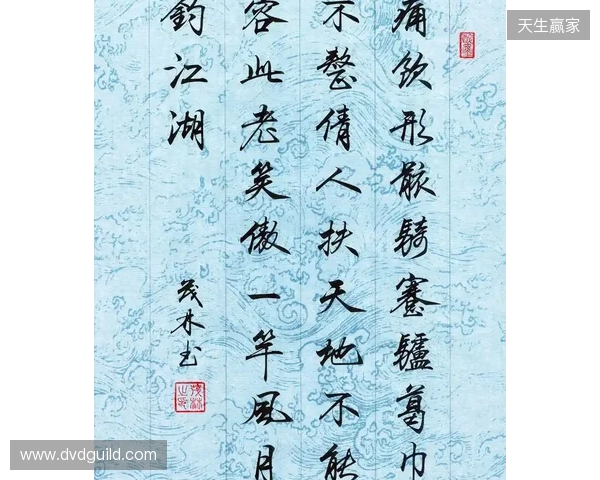 天生赢家
痛飲形骸騎蹇驢葛巾
不整倩人扶天地不能
容此老笑傲一竿風月
釣江湖
茂林书
www.dvdguild.com